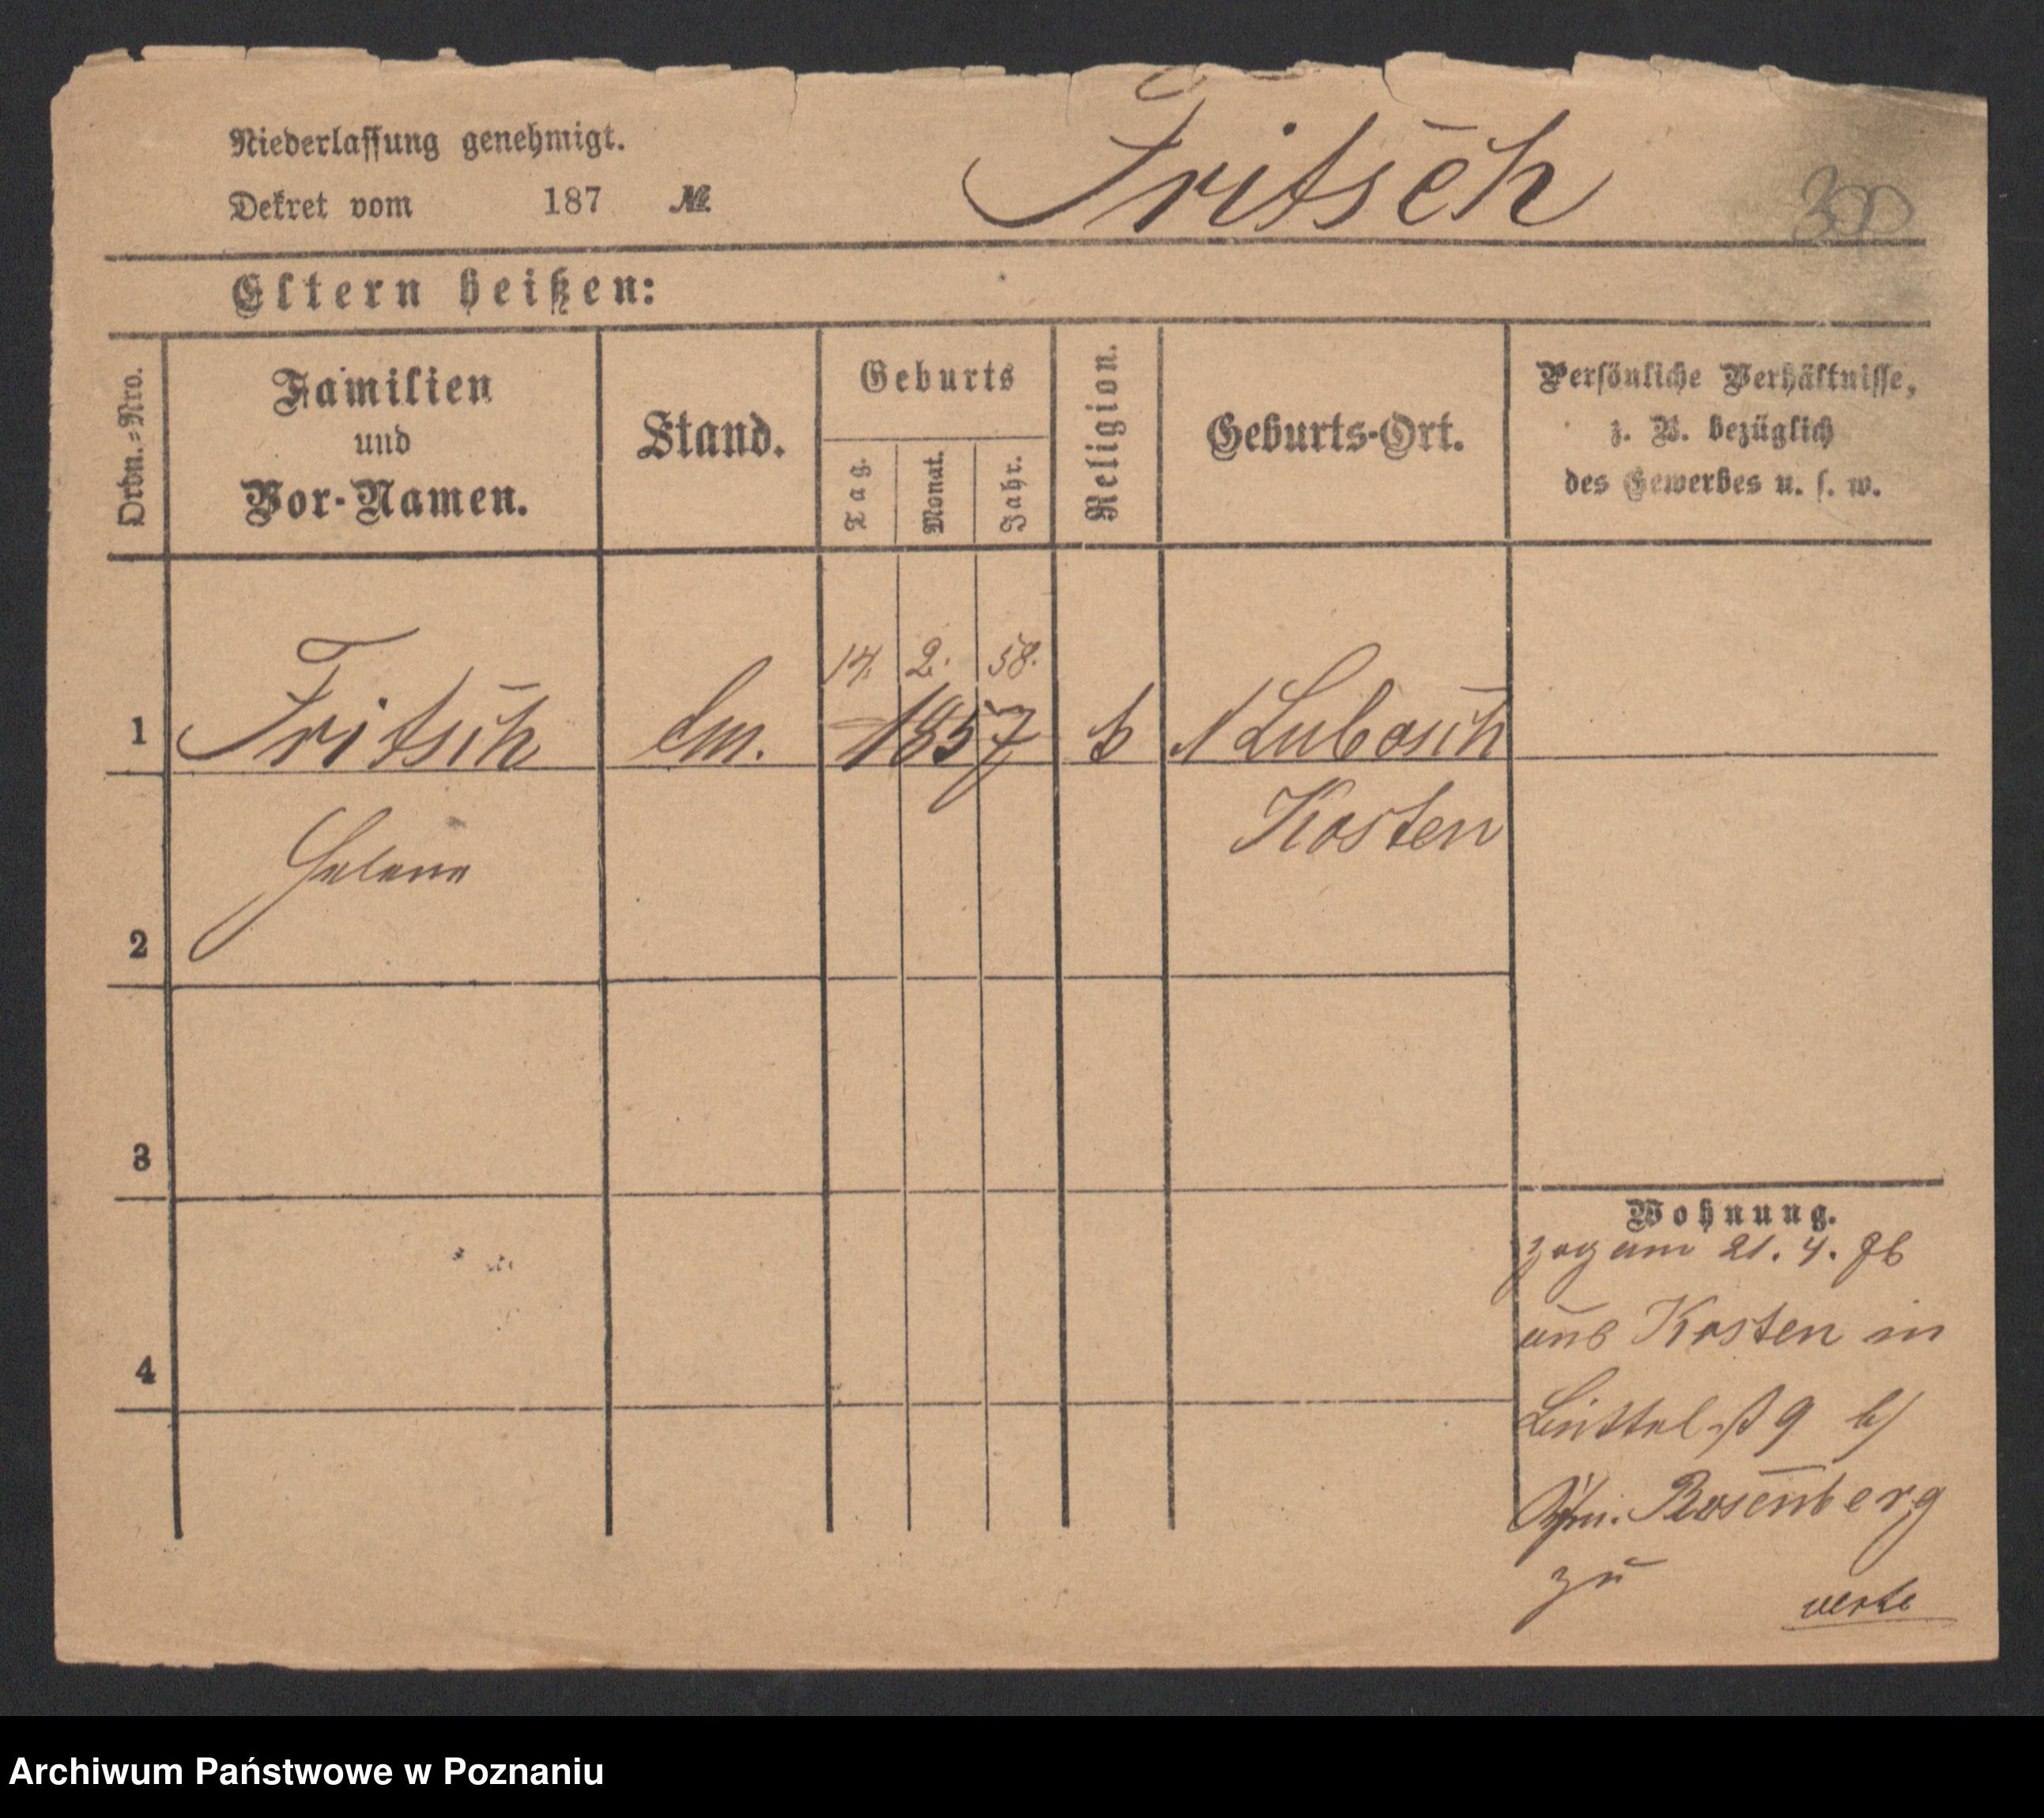 Niederlassung genehmigt.
Dekret vom 187 №
Fritsch
300
Eltern heißen:
Ordn.=Nro.
Familien
und
Vor-Namen.
Stand.
Geburts
Tag.
Monat.
Jahr.
Religion.
Geburts-Ort.
Persönliche Verhältnisse,
z. B. bezüglich
des Gewerbes u. s. w.
14. 2. 58.
1 Fritsch 1857 Lubosch
Helene Kosten
2
3
4
Wohnung.
zog am 21. 4. 76
aus Kosten in
9 b/
Rosenberg
zu